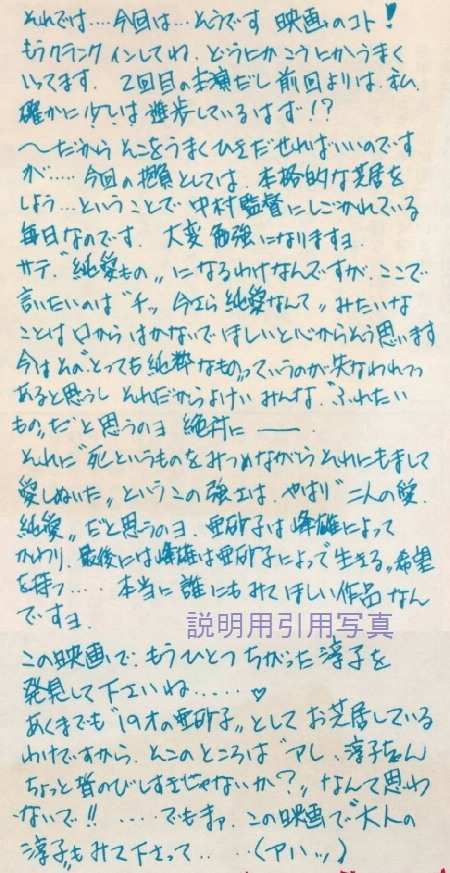 それでは‥‥今回は…そうです 映画のコト!
もうクランクインしてね、どうにかこうにかうまく
いってます。 2回目の主演だし前回よりは、私、
確かに少しは進歩しているはず!?
〜だからそこをうまくひきだせればいいのです
が‥‥。今回の抱負としては、本格的な芝居を
しよう…ということで中村監督にしごかれている
毎日なのです。 大変勉強になりますヨ。
サテ、"純愛もの〟になるわけなんですが、ここで
言いたいのは"チッ、今さら純愛なんて〟みたいな
ことは口からはかないでほしいと心からそう思います
今はその"とっても純粋なもの〟っていうのが失なわれつつ
あると思うし それだからよけいみんな、"ふれたい
もの〟だ"と思うのヨ 絶対に ――.
それに"死というものをみつめながらそれにもまして
愛しぬいた〟というこの強さは、やはり"二人の愛、
純愛〟だと思うのヨ。 亜砂子は峰雄によって
かわり、最後には峰雄は亜砂子によって"生きる〟希望
を持つ‥‥ 本当に誰にもみてほしい作品なん
ですヨ。
説明用引用写真
この映画で、もうひとつちがった淳子を
発見して下さいね‥‥‥♡
あくまでも"19才の亜砂子〟としてお芝居している
わけですから、そこのところは"アレ、淳子ちゃん
ちょっと背のびしすぎじゃないか?〟なんて思わ
ないで!! ‥‥でもまァ、この映画で"大人の
淳子〟もみて下さって‥‥(アハッ)